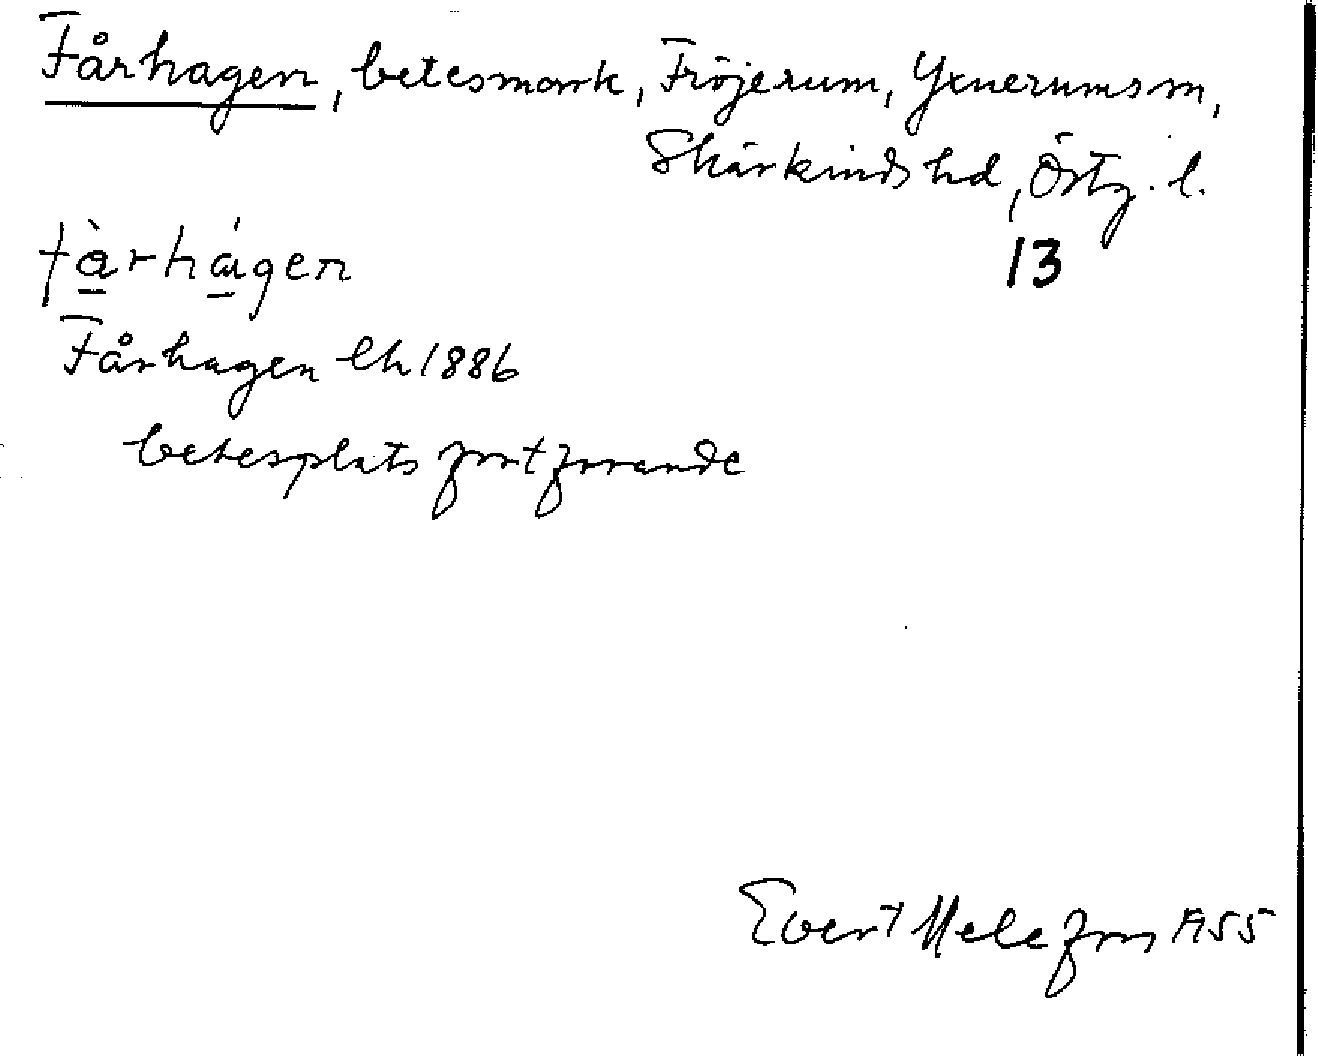 Fårhagen, betesmark, Fröjerum, Yxnerums sn,
Skärkinds hd, Östg. l.
13
fàrhágen
Fårhagen Eh 1886
betesplats fortfarande
Evert Melefors 1955